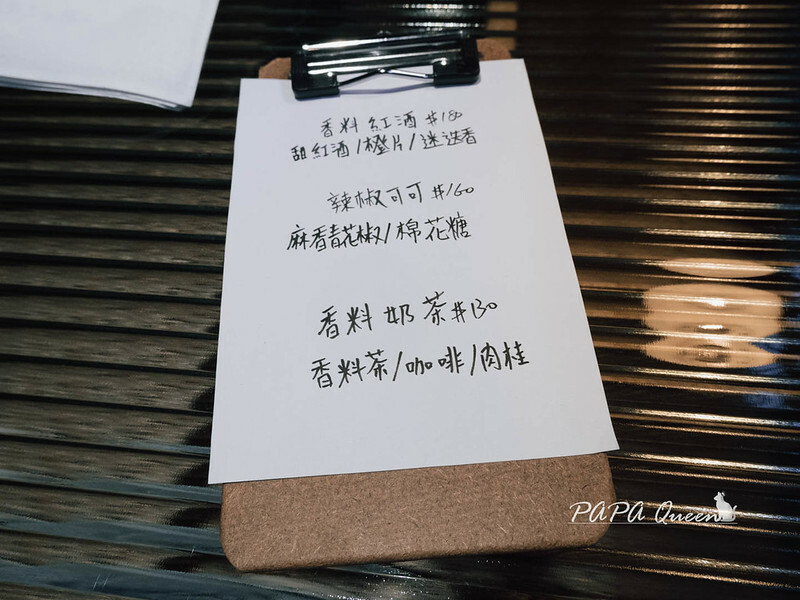 香料紅酒 #180
甜紅酒/橙片/迷迭香
辣椒可可 #160
麻香青花椒/棉花糖
香料奶茶 #130
香料茶/咖啡/肉桂
PAPA Queen